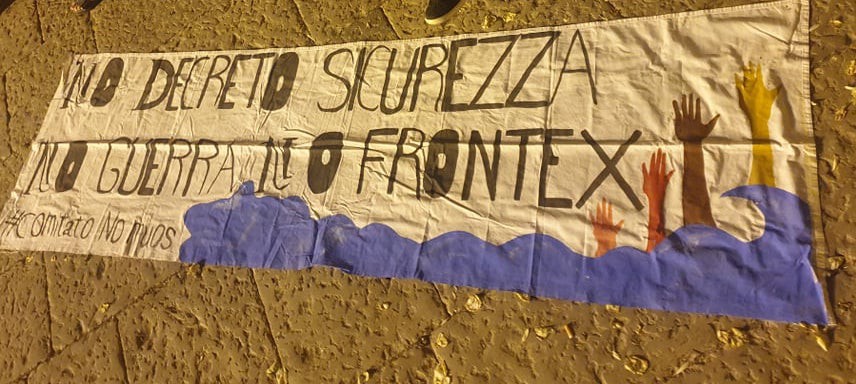 NO DECRETO SICUREZZA
NO GUERRA NO FRONTEX
#Comitato No Muos